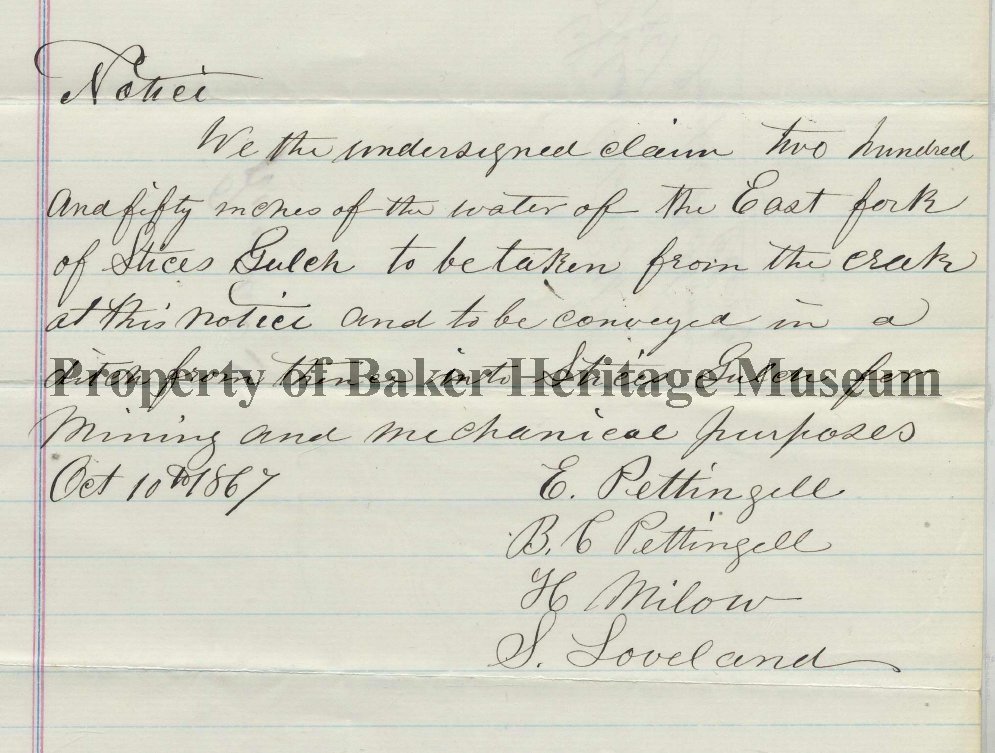 Notice
We the undersigned claim two hundred
And fifty inches of the water of the East fork
of Stices Gulch to be taken from the creek
at this Notice And to be conveyed in a
ditch from thence into Stices Gulch for
Property of Baker Heritage Museum
Mining and mechanical purposes
Oct 10th 1867
E. Pettingell
B. C Pettingell
H Milow
S. Loveland